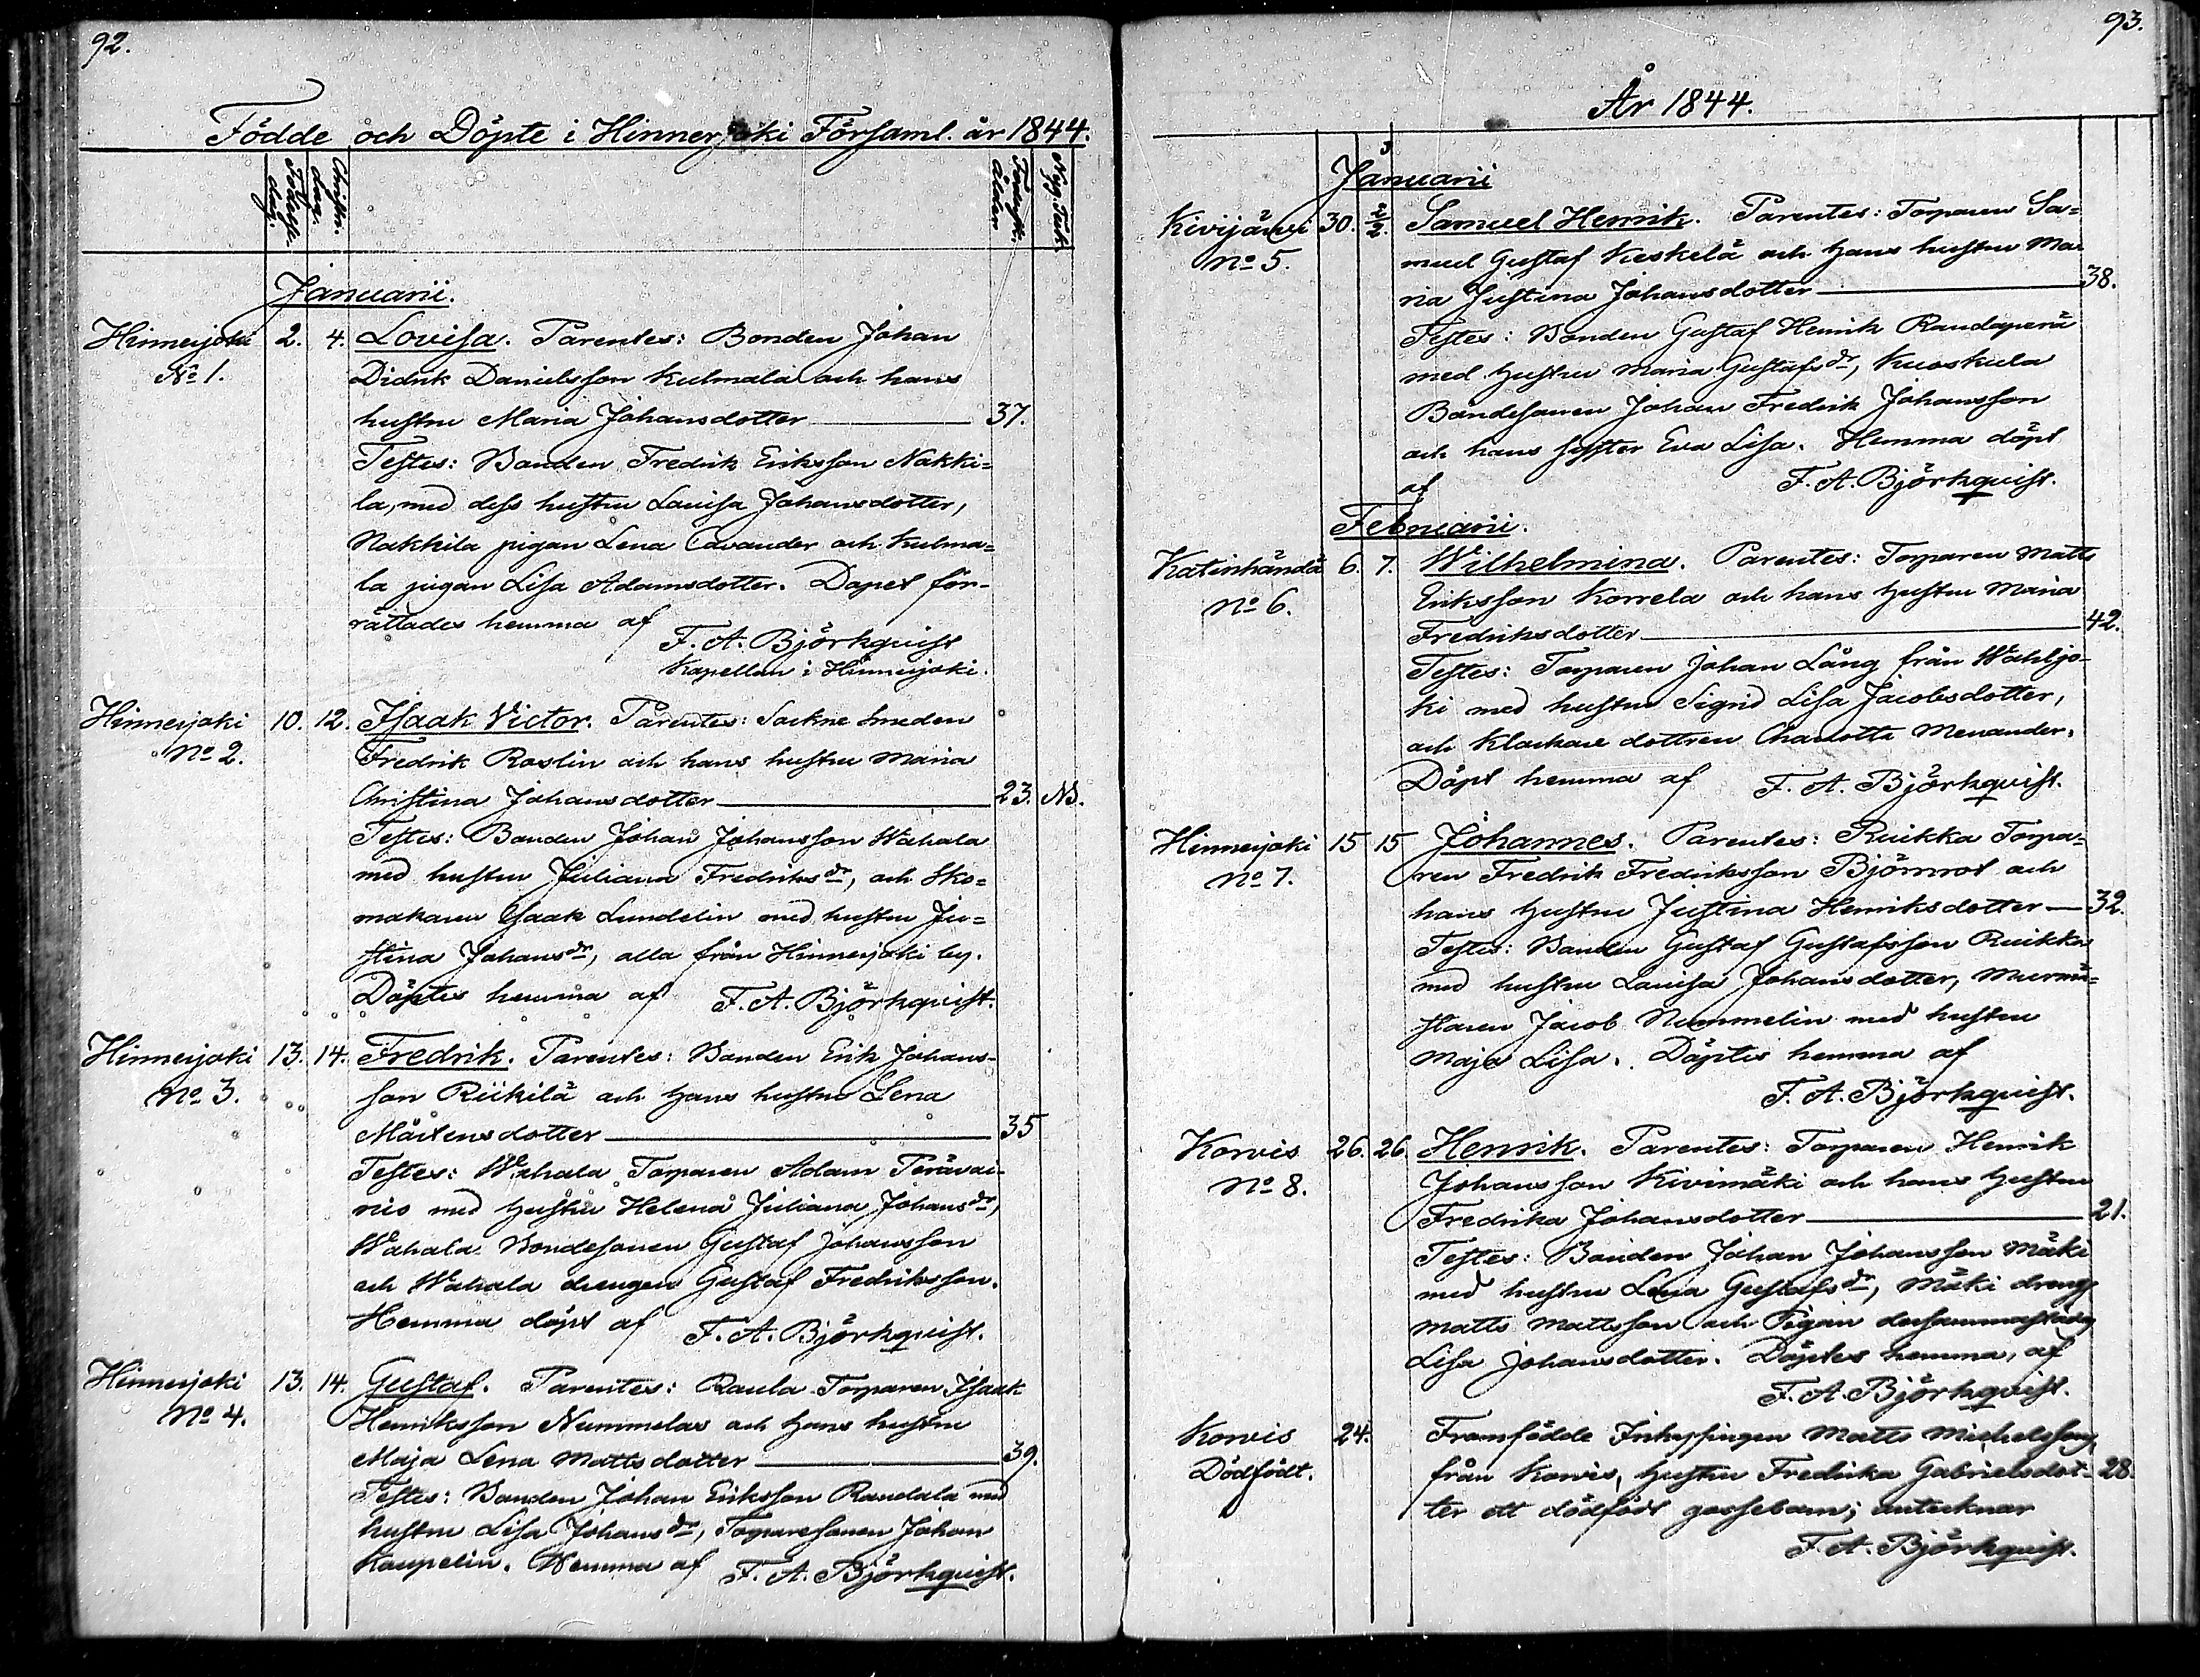 92.
Födde och Döpte i Hinnerjoki Församl. år 1844.
Födelse dag.
Christn. dag.
Föräldr. Ålder.
Januarii.
Hinnerjoki 2. 4. Lovisa. Parentes: Bonden Johan
No 1. Didrik Danielsson Kulmala och hans
hustru Maria Johansdotter 37.
Testes: Bonden Fredrik Eriksson Nakki=
la, med dess hustru Lovisa Johansdotter,
Nakkila pigan Lena Cavander och Kulma=
la pigan Lisa Adamsdotter. Dopet för-
rättades hemma af
F. A. Björkqvist
Kapellan i Hinnerjoki.
Hinnerjoki 10. 12. Isaak Victor. Parentes: Sockne Smeden
No 2. Fredrik Roslin och hans hustru Maria
Christina Johansdotter 23. NB.
Testes: Bonden Johan Johansson Wahala
med hustru Juliana Fredriksdr, och Sko=
makaren Isaak Lundelin med hustru Ju=
stina Johansdr, alla från Hinnerjoki by.
Döptes hemma af F. A. Björkqvist.
Hinnerjoki 13. 14. Fredrik. Parentes: Bonden Erik Johans-
No 3. son Riikilä och hans hustru Lena
Mårtensdotter 35
Testes: Wahala Torparen Adam Perävai-
nio med hustru Helena Juliana Johansdr,
Wahala Bondesonen Gustaf Johansson
och Wahala drengen Gustaf Fredriksson.
Hemma döpt af F. A. Björkqvist.
Hinnerjoki 13. 14. Gustaf. Parentes: Raula Torparen Isaak
No 4. Henriksson Nummelas och hans hustru
Maja Lena Mattsdotter 39.
Testes: Bonden Johan Eriksson Raudala med
hustru Lisa Johansdr, Torparesonen Johan
Kaupelin. Hemma af F. A. Björkqvist.
93.
År 1844.
Januarii
Kivijärvi 30. 2/2. Samuel Henrik. Parentes: Torparen Sa=
No 5. muel Gustaf Keskelä och hans hustru Ma
ria Justina Johansdotter 38.
Testes: Bonden Gustaf Henrik Raudaperä
med hustru Maria Gustafsdr, Kuoskula
Bondesonen Johan Fredrik Johansson
och hans syster Eva Lisa. Hemma döpt
af F. A. Björkqvist.
Februarii.
Katinhändä 6. 7. Wilhelmina. Parentes: Torparen Matts
No 6. Eriksson Korrela och hans hustru Maria
Fredriksdotter 42.
Testes: Torparen Johan Lång från Wahljo-
ki med hustru Sigrid Lisa Jacobsdotter,
och Klockare dottren Charlotta Menander.
Döpt hemma af F. A. Björkqvist.
Hinnerjoki 15 15 Johannes. Parentes: Ruikka Torpa=
No 7. ren Fredrik Fredriksson Björnrot och
hans hustru Justina Henriksdotter 32.
Testes: Bonden Gustaf Gustafsson Ruikka
med hustru Lovisa Johansdotter, Murmä=
staren Jacob Nummelin med hustru
Maja Lisa. Döptes hemma af
F. A. Björkqvist.
Korvis 26. 26. Henrik. Parentes: Torparen Henrik
No 8. Johansson Kivimäki och hans hustru
Fredrika Johansdotter 21.
Testes: Bonden Johan Johansson Mäki
med hustru Lena Gustafsdr, Mäki dreng
Matts Mattsson och Pigan dersammastädes
Lisa Johansdotter. Döptes hemma, af
F. A. Björkqvist.
Korvis 24. Framfödde Inhysingen Matts Michelsson,
Dödfödt. från Korvis, hustru Fredrika Gabrielsdot- 28.
ter ett dödfödt gossebarn; antecknar
F. A. Björkqvist.